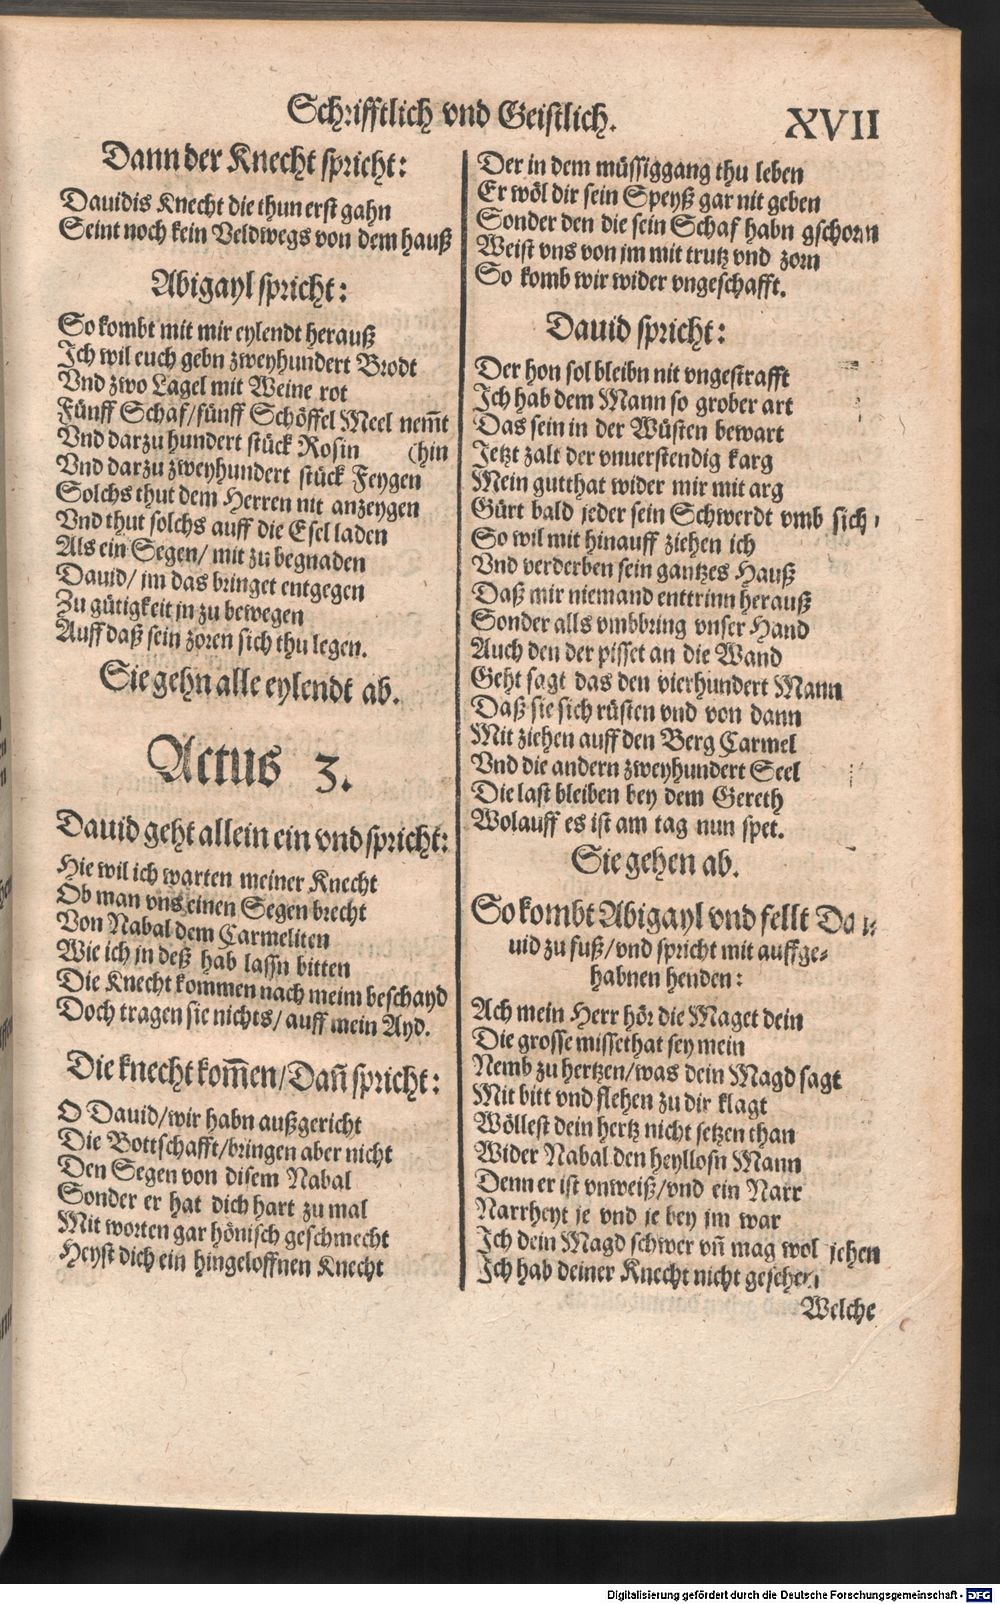 Schrifftlich vnd Geistlich.
XVII
Dann der Knecht spricht:
Dauidis Knecht die thun erst gahn
Seint noch kein Veldwegs von dem hauß
Abigayl spricht:
So kombt mit mir eylendt herauß
Ich wil euch gebn zweyhundert Brodt
Vnd zwo Lagel mit Weine rot
Fünff Schaf/fünff Schöffel Meel nem̃t
Vnd darzu hundert stück Rosin (hin
Vnd darzu zweyhundert stück Feygen
Solchs thut dem Herren nit anzeygen
Vnd thut solchs auff die Esel laden
Als ein Segen/ mit zu begnaden
Dauid/ jm das bringet entgegen
Zu gütigkeit jn zu bewegen
Auff daß sein zoren sich thu legen.
Sie gehn alle eylendt ab.
Actus 3.
Dauid geht allein ein vnd spricht:
Hie wil ich warten meiner Knecht
Ob man vns einen Segen brecht
Von Nabal dem Carmeliten
Wie ich jn deß hab lassn bitten
Die Knecht kommen nach meim beschayd
Doch tragen sie nichts/ auff mein Ayd.
Die knecht kom̃en/Dañ spricht:
O Dauid/wir habn außgericht
Die Bottschafft/bringen aber nicht
Den Segen von disem Nabal
Sonder er hat dich hart zu mal
Mit worten gar hönisch geschmecht
Heyst dich ein hingeloffnen Knecht
Der in dem müssiggang thu leben
Er wöl dir sein Speyß gar nit geben
Sonder den die sein Schaf habn gschorn
Weist vns von jm mit trutz vnd zorn
So komb wir wider vngeschafft.
Dauid spricht:
Der hon sol bleibn nit vngestrafft
Ich hab dem Mann so grober art
Das sein in der Wüsten bewart
Jetzt zalt der vnuerstendig karg
Mein gutthat wider mir mit arg
Gürt bald jeder sein Schwerdt vmb sich
So wil mit hinauff ziehen ich
Vnd verderben sein gantzes Hauß
Daß mir niemand enttrinn herauß
Sonder alls vmbbring vnser Hand
Auch den der pisset an die Wand
Geht sagt das den vierhundert Mann
Daß sie sich rüsten vnd von dann
Mit ziehen auff den Berg Carmel
Vnd die andern zweyhundert Seel
Die last bleiben bey dem Gereth
Wolauff es ist am tag nun spet.
Sie gehen ab.
So kombt Abigayl vnd fellt Da-
uid zu fuß/vnd spricht mit auffge-
habnen henden:
Ach mein Herr hör die Maget dein
Die grosse missethat sey mein
Nemb zu hertzen/was dein Magd sagt
Mit bitt vnd flehen zu dir klagt
Wöllest dein hertz nicht setzen than
Wider Nabal den heyllosn Mann
Denn er ist vnweiß/vnd ein Narr
Narrheyt je vnd je bey jm war
Ich dein Magd schwer vñ mag wol jehen
Ich hab deiner Knecht nicht gesehen
Welche
Digitalisierung gefördert durch die Deutsche Forschungsgemeinschaft - DFG